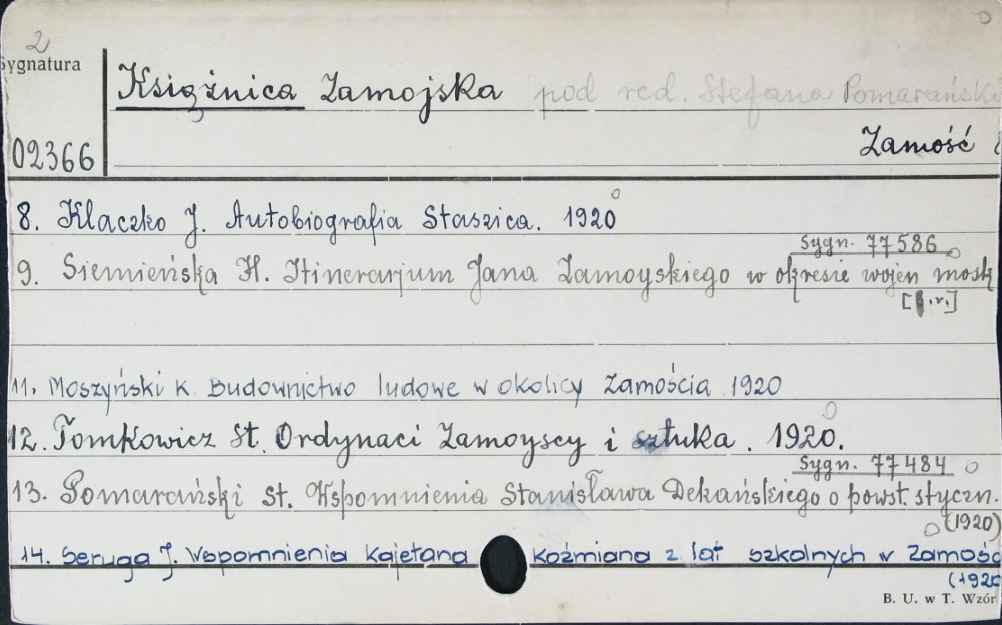 2
Sygnatura
Książnica Zamojska pod red. Stefana Pomarański
02366
Zamość
8. Klaczko J. Autobiografia Staszica. 1920
Sygn. 77586
9. Siemieńska H. Itinerarjum Jana Zamoyskiego w okresie wojen mosk
11. Moszyński K. Budownictwo ludowe w okolicy Zamościa 1920
12. Tomkowicz St. Ordynaci Zamoyscy i sztuka. 1920.
Sygn. 77484
13. Pomarański St. Wspomnienia Stanisława Dekańskiego o powst. styczn.
(1920)
14. Seruga J. Wspomnienia Kajetana Koźmiana z lat szkolnych w Zamość
(1920
B. U. w T. Wzór